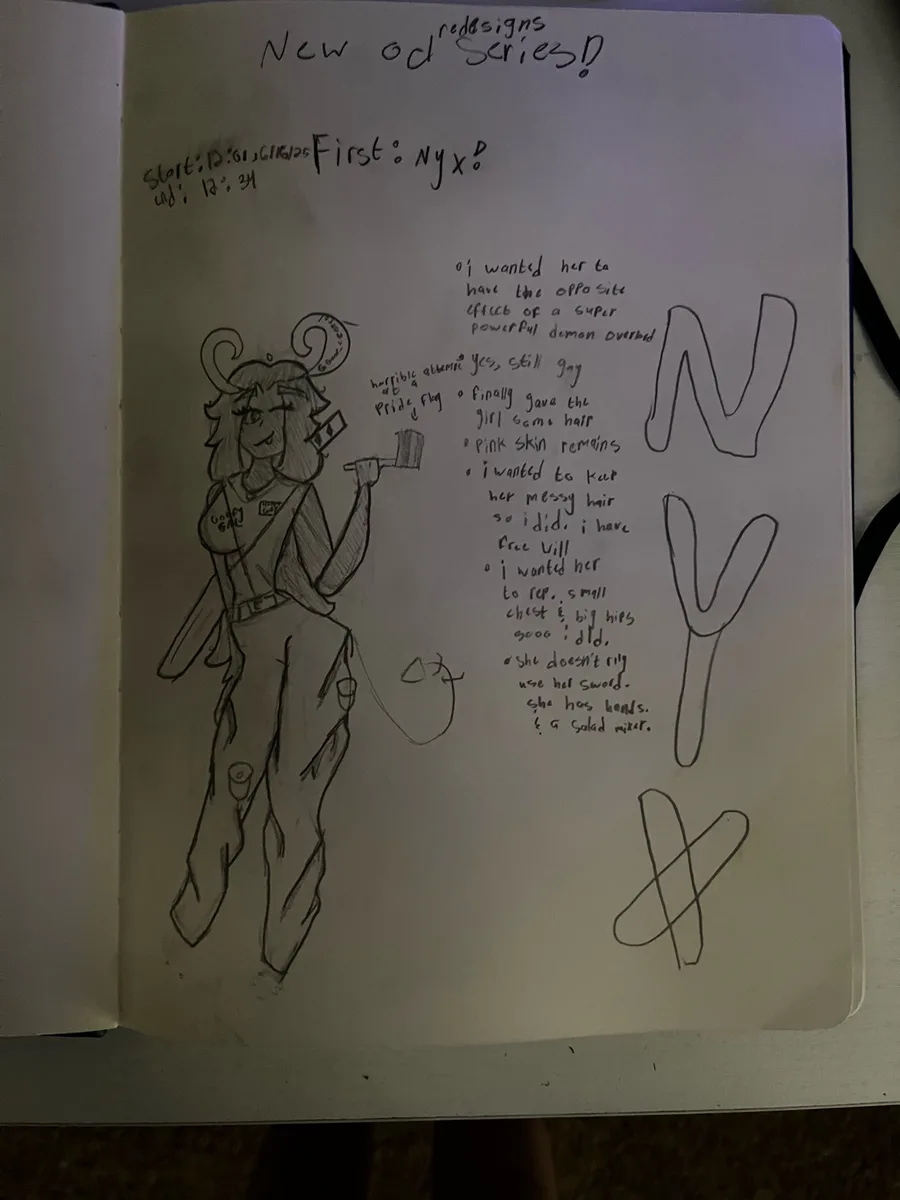 redesigns
New od Series!
start: 12:01, 6/16/25
end: 12:34
First: Nyx!
i wanted her to
have the opposite
effect of a super
powerful demon overlord
yes, still gay
finally gave the
girl some hair
pink skin remains
i wanted to keep
her messy hair
so i did. i have
free will
i wanted her
to rep. small
chest & big hips
sooo i did.
she doesn't rlly
use her sword.
she has hands.
& a salad mixer.
horrible attempt
at a
pride flag
GOOFY
N
Y
X